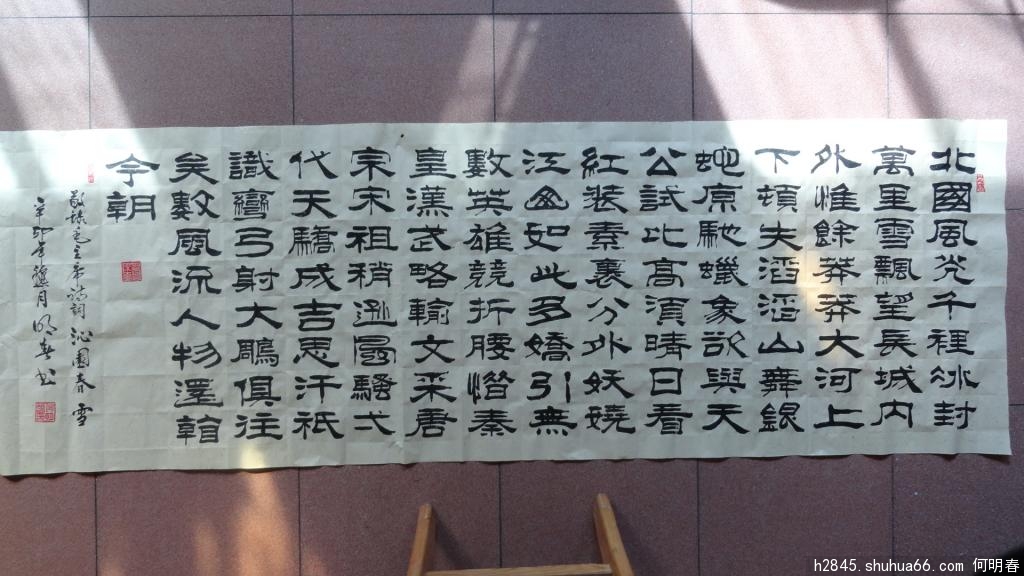 北國風光千裡冰封
萬里雪飄望長城內
外惟餘莽莽大河上
下頓失滔滔山舞銀
蛇原馳蠟象欲與天
公試比高須晴日看
紅裝素裹分外妖嬈
江山如此多嬌引無
數英雄競折腰惜秦
皇漢武略輸文采唐
宗宋祖稍遜風騷弌
代天驕成吉思汗祇
識彎弓射大鵰俱往
矣數風流人物還看
今朝
敬錄毛主席詩詞 沁園春 雪
辛卯年 月明春書
h2845.shuhua66.com 何明春